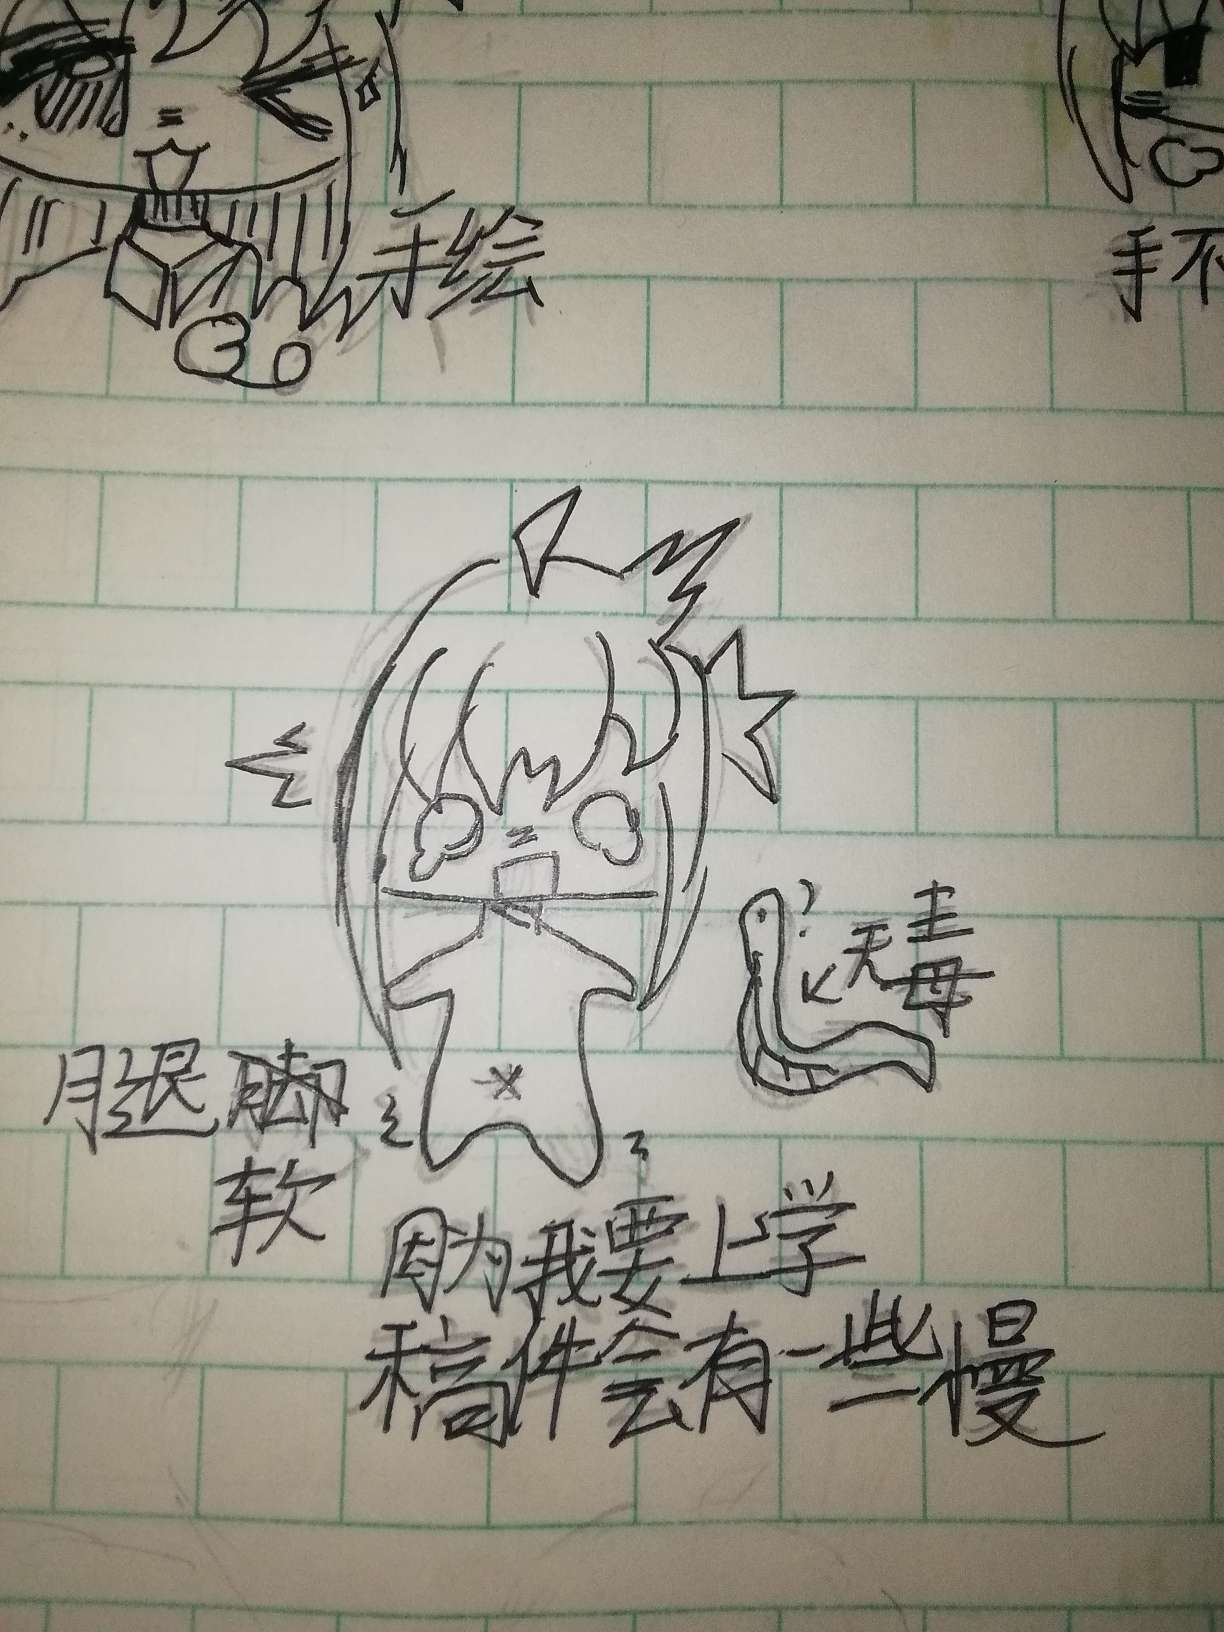 手绘
手不
无毒
腿脚
软
因为我要上学
稿件会有一些慢